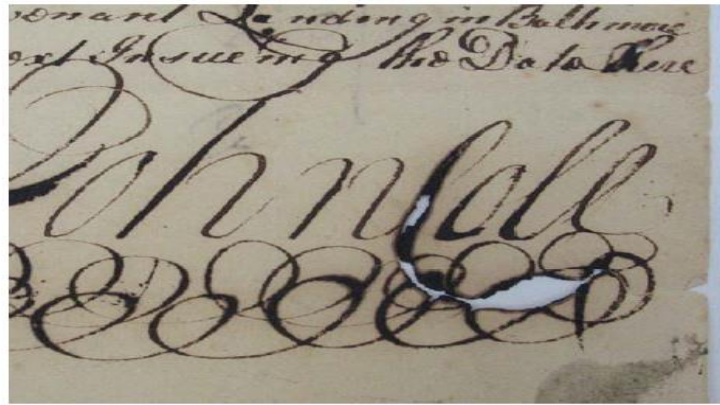 venant Landing in Baltimore
ext Insueing the Date Here
John Coll